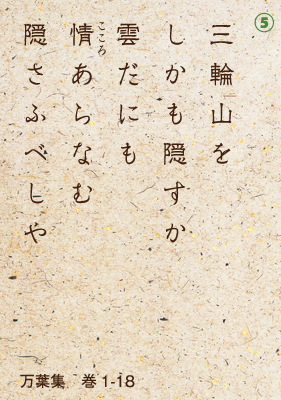 ⑤
三輪山を
しかも隠すか
雲だにも
情あらなむ
こころ
隠さふべしや
万葉集 巻1-18